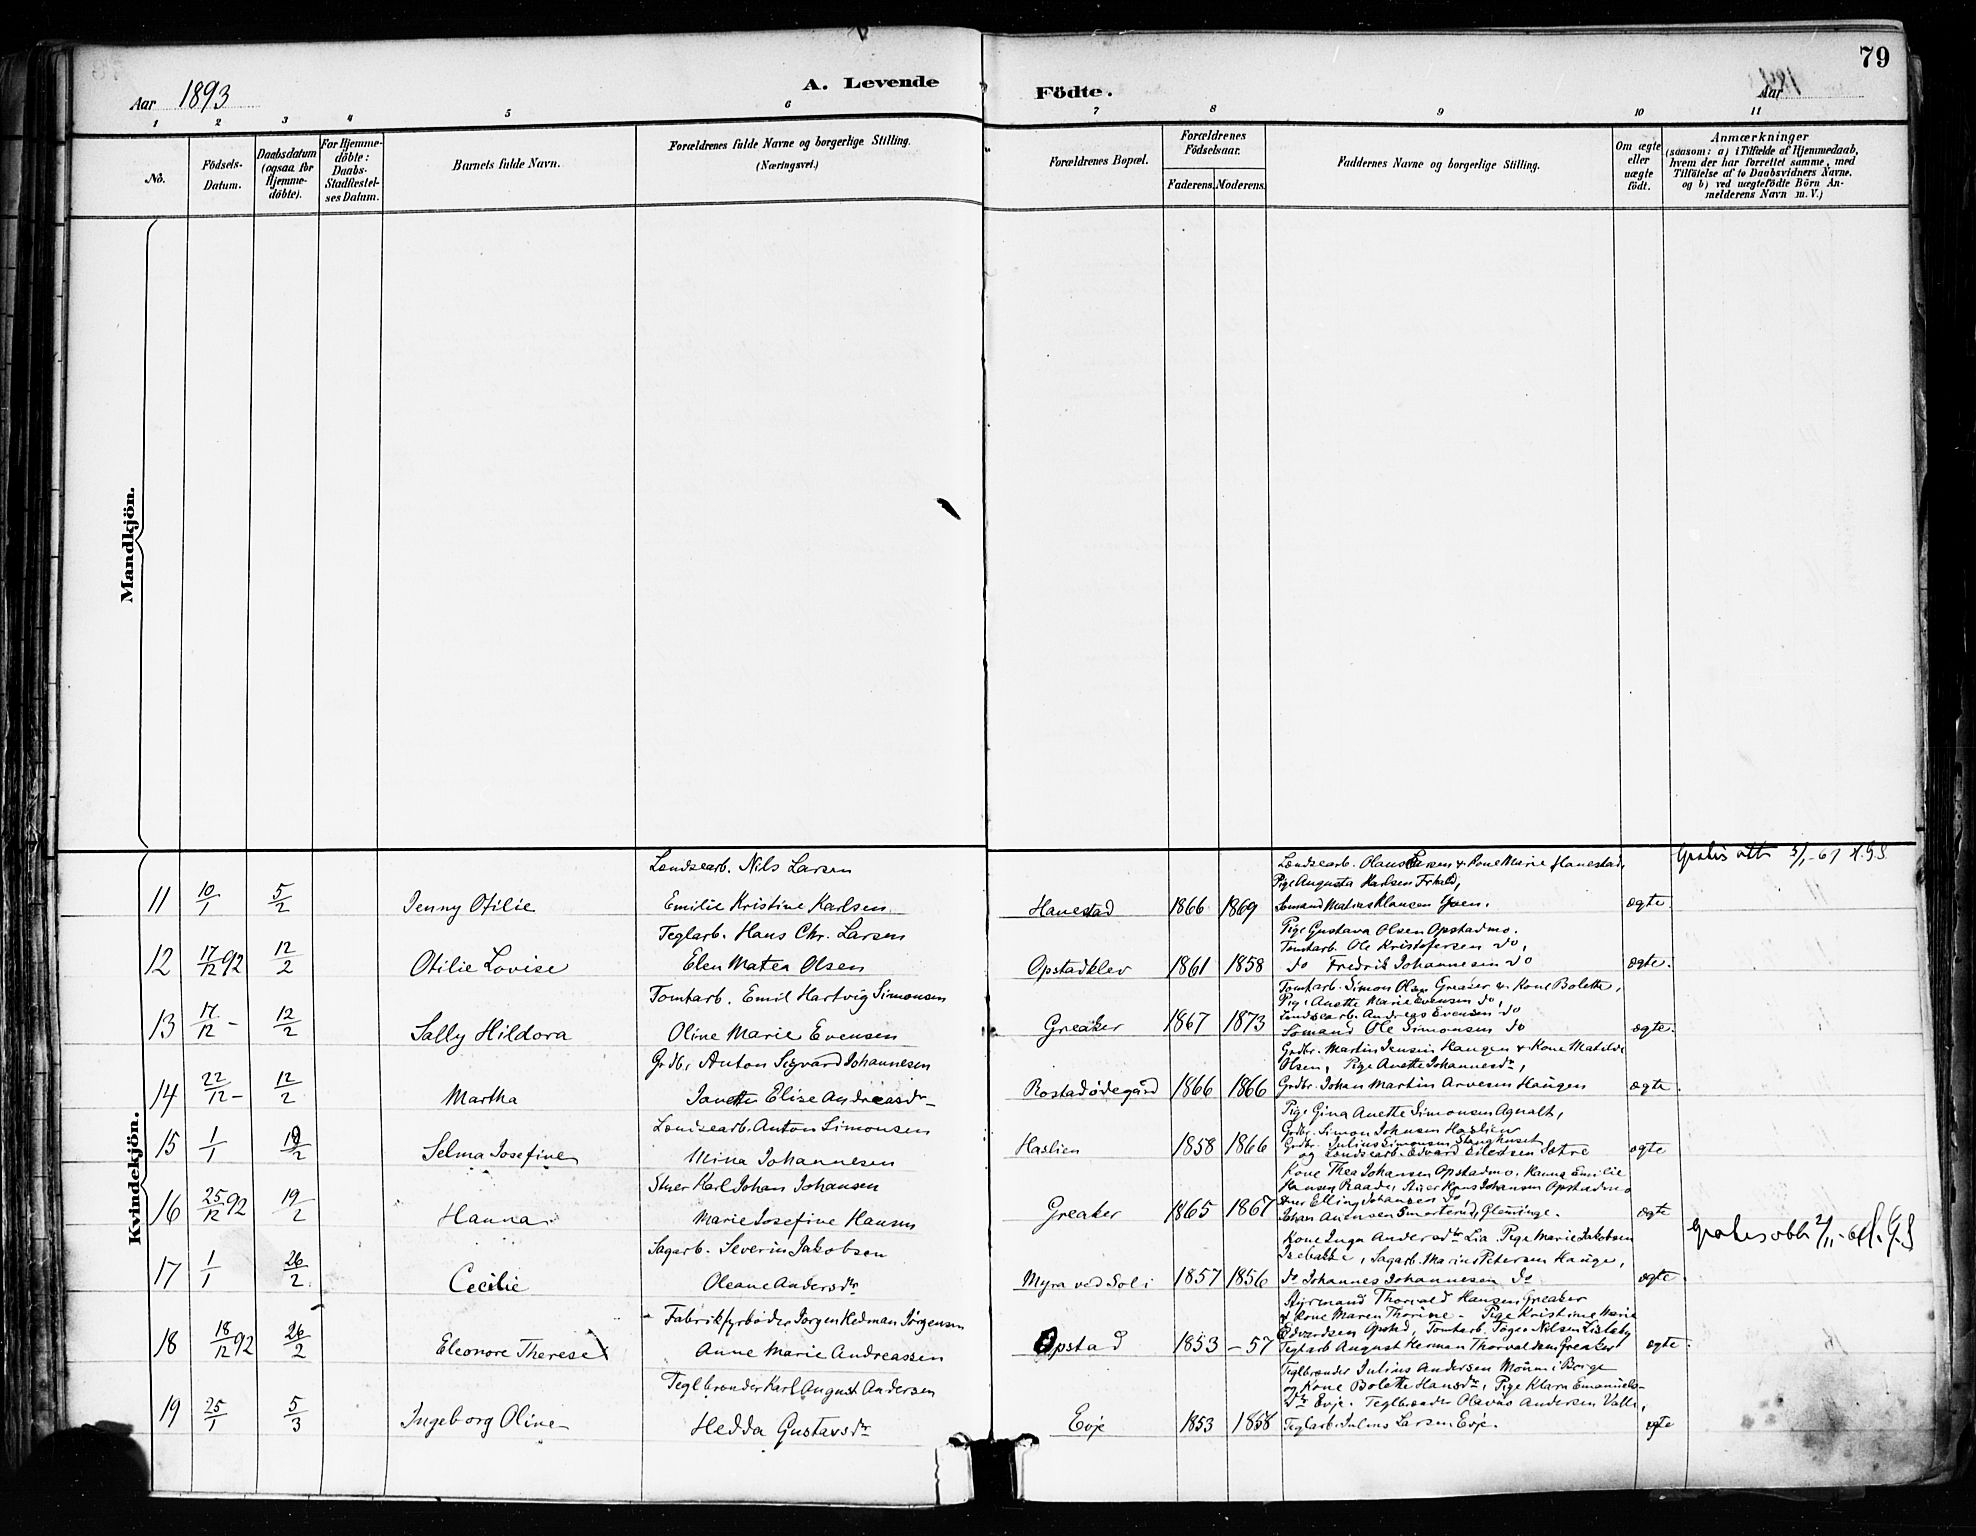 79
Aar 1893
A. Levende
Födte.
Aar
1 2 3 4 5 6 7 8 9 10 11
No.
Födsels-Datum.
Daabsdatum (ogsaa for Hjemme-döbte).
For Hjemme-döbte: Daabs-Stadfæstel-ses Datum.
Barnets fulde Navn.
Forældrenes fulde Navne og borgerlige Stilling. (Næringsvei.)
Forældrenes Bopæl.
Forældrenes Födselsaar.
Faderens. Moderens.
Faddernes Navne og borgerlige Stilling.
Om ægte eller uægte födt.
Anmærkninger
(saasom: a) i Tilfælde af Hjemmedaab,
hvem der har forrettet samme, med
Tilföielse af to Daabsvidners Navne,
og b) ved uægtefödte Börn An-
melderens Navn m. V.)
Mandkjön.
Kvindekjön.
Landsearb. Nils Larsen
Landsearb. Olaus Larsen & Kone Marie Hanestad,
Pige Augusta Karlsen
11 10/1 5/2 Jenny Otilie Emilie Kristine Karlsen Hanestad 1866 1869 Sömand Matias Klausen ægte
Teglarb. Hans Chr. Larsen
Pige Gustava Olsen Opstadmo.
Tomtarb. Ole Kristofersen do,
12 17/12 92 12/2 Otilie Lovise Elen Matea Olsen Opstadklev 1861 1858 do Fredrik Johannesen do ægte.
Tomtarb. Emil Hartvig Simonsen
Tomtarb. Simon Olsen Greaker & Kone Bolette,
Pige Anette Marie Evensen do,
Landsearb. Andreas Evensen do
13 17/12 - 12/2 Sally Hildora Oline Marie Evensen Greaker 1867 1873 Sömand Ole Simonsen do ægte.
Grdbr. Anton Sigvard Johannesen
Grdbr. Martin Jensen Haugen & Kone Matilde
Olsen, Pige Anette Johannesdr,
14 22/12 - 12/2 Martha Janette Elise Andreasdr Rostadødegård 1866 1866 Grdbr. Johan Martin Arvesen Haugen ægte
Landsearb. Anton Simonsen
Pige Gina Anette Simonsen Agnalt,
Grdbr. Simon Johnsen Haslien
Grdbr. Julius Simonsen Stanghuset
15 1/1 /2 Selma Josefine Mina Johannesen Haslien 1858 1866 og Landsearb. Edvard Eilertsen Sætre ægte
Stuer Karl Johan Johansen
Kone Thea Johansen Opstadmo, Hanna Emilie
Hansen Raade, Stuer Hans Johansen Opstadmo
Stuer Elling Johansen do
16 25/12 92 19/2 Hanna Marie Josefine Hansen Greaker 1865 1867 Johan Glemminge. ægte
Sagarb. Severin Jakobsen
Kone Inga Andersdtr Lia Pige Marie Jakobsen
Isebakke, Sagarb. Marius Petersen Hauge,
17 1/1 26/2 Cecilie Oleane Andersdtr Myra ved Soli 1857 1856 do Johannes Johannesen do ægte
Fabrikfyrböder Jörgen Hedman Jörgensen
Styrmand Thorvald Hansen Greaker
& Kone Maren Thorine - Pige Kristine Marie
Edvardsen Opstad, Tomtarb. Nilsen Lisleby
18 18/12 92 26/2 Eleonore Therese Anne Marie Andreassen Opstad 1853 -57 Teglarb August Herman Thorvaldsen Greaker ægte.
Teglbrænder Karl August Andersen
Teglbrænder Julius Andersen Moum i Borge
og Kone Bolette Hansdtr, Pige Klara Emanuels-
dtr Evje. Teglbrænder Olavus Andersen Valle,
19 25/1 5/3 Ingeborg Oline Hedda Gustavsdtr Evje 1853 1858 Teglarb. Julius Larsen Evje. ægte